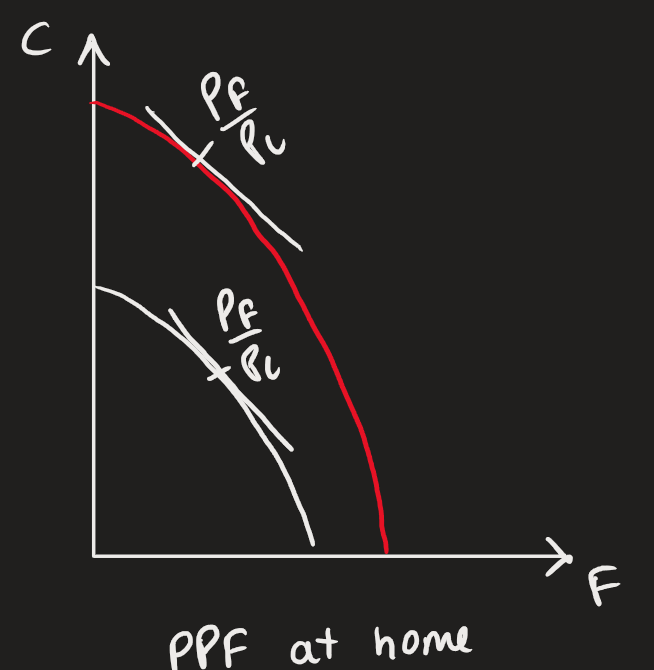 C
PF
PC
PF
PC
F
PPF at home